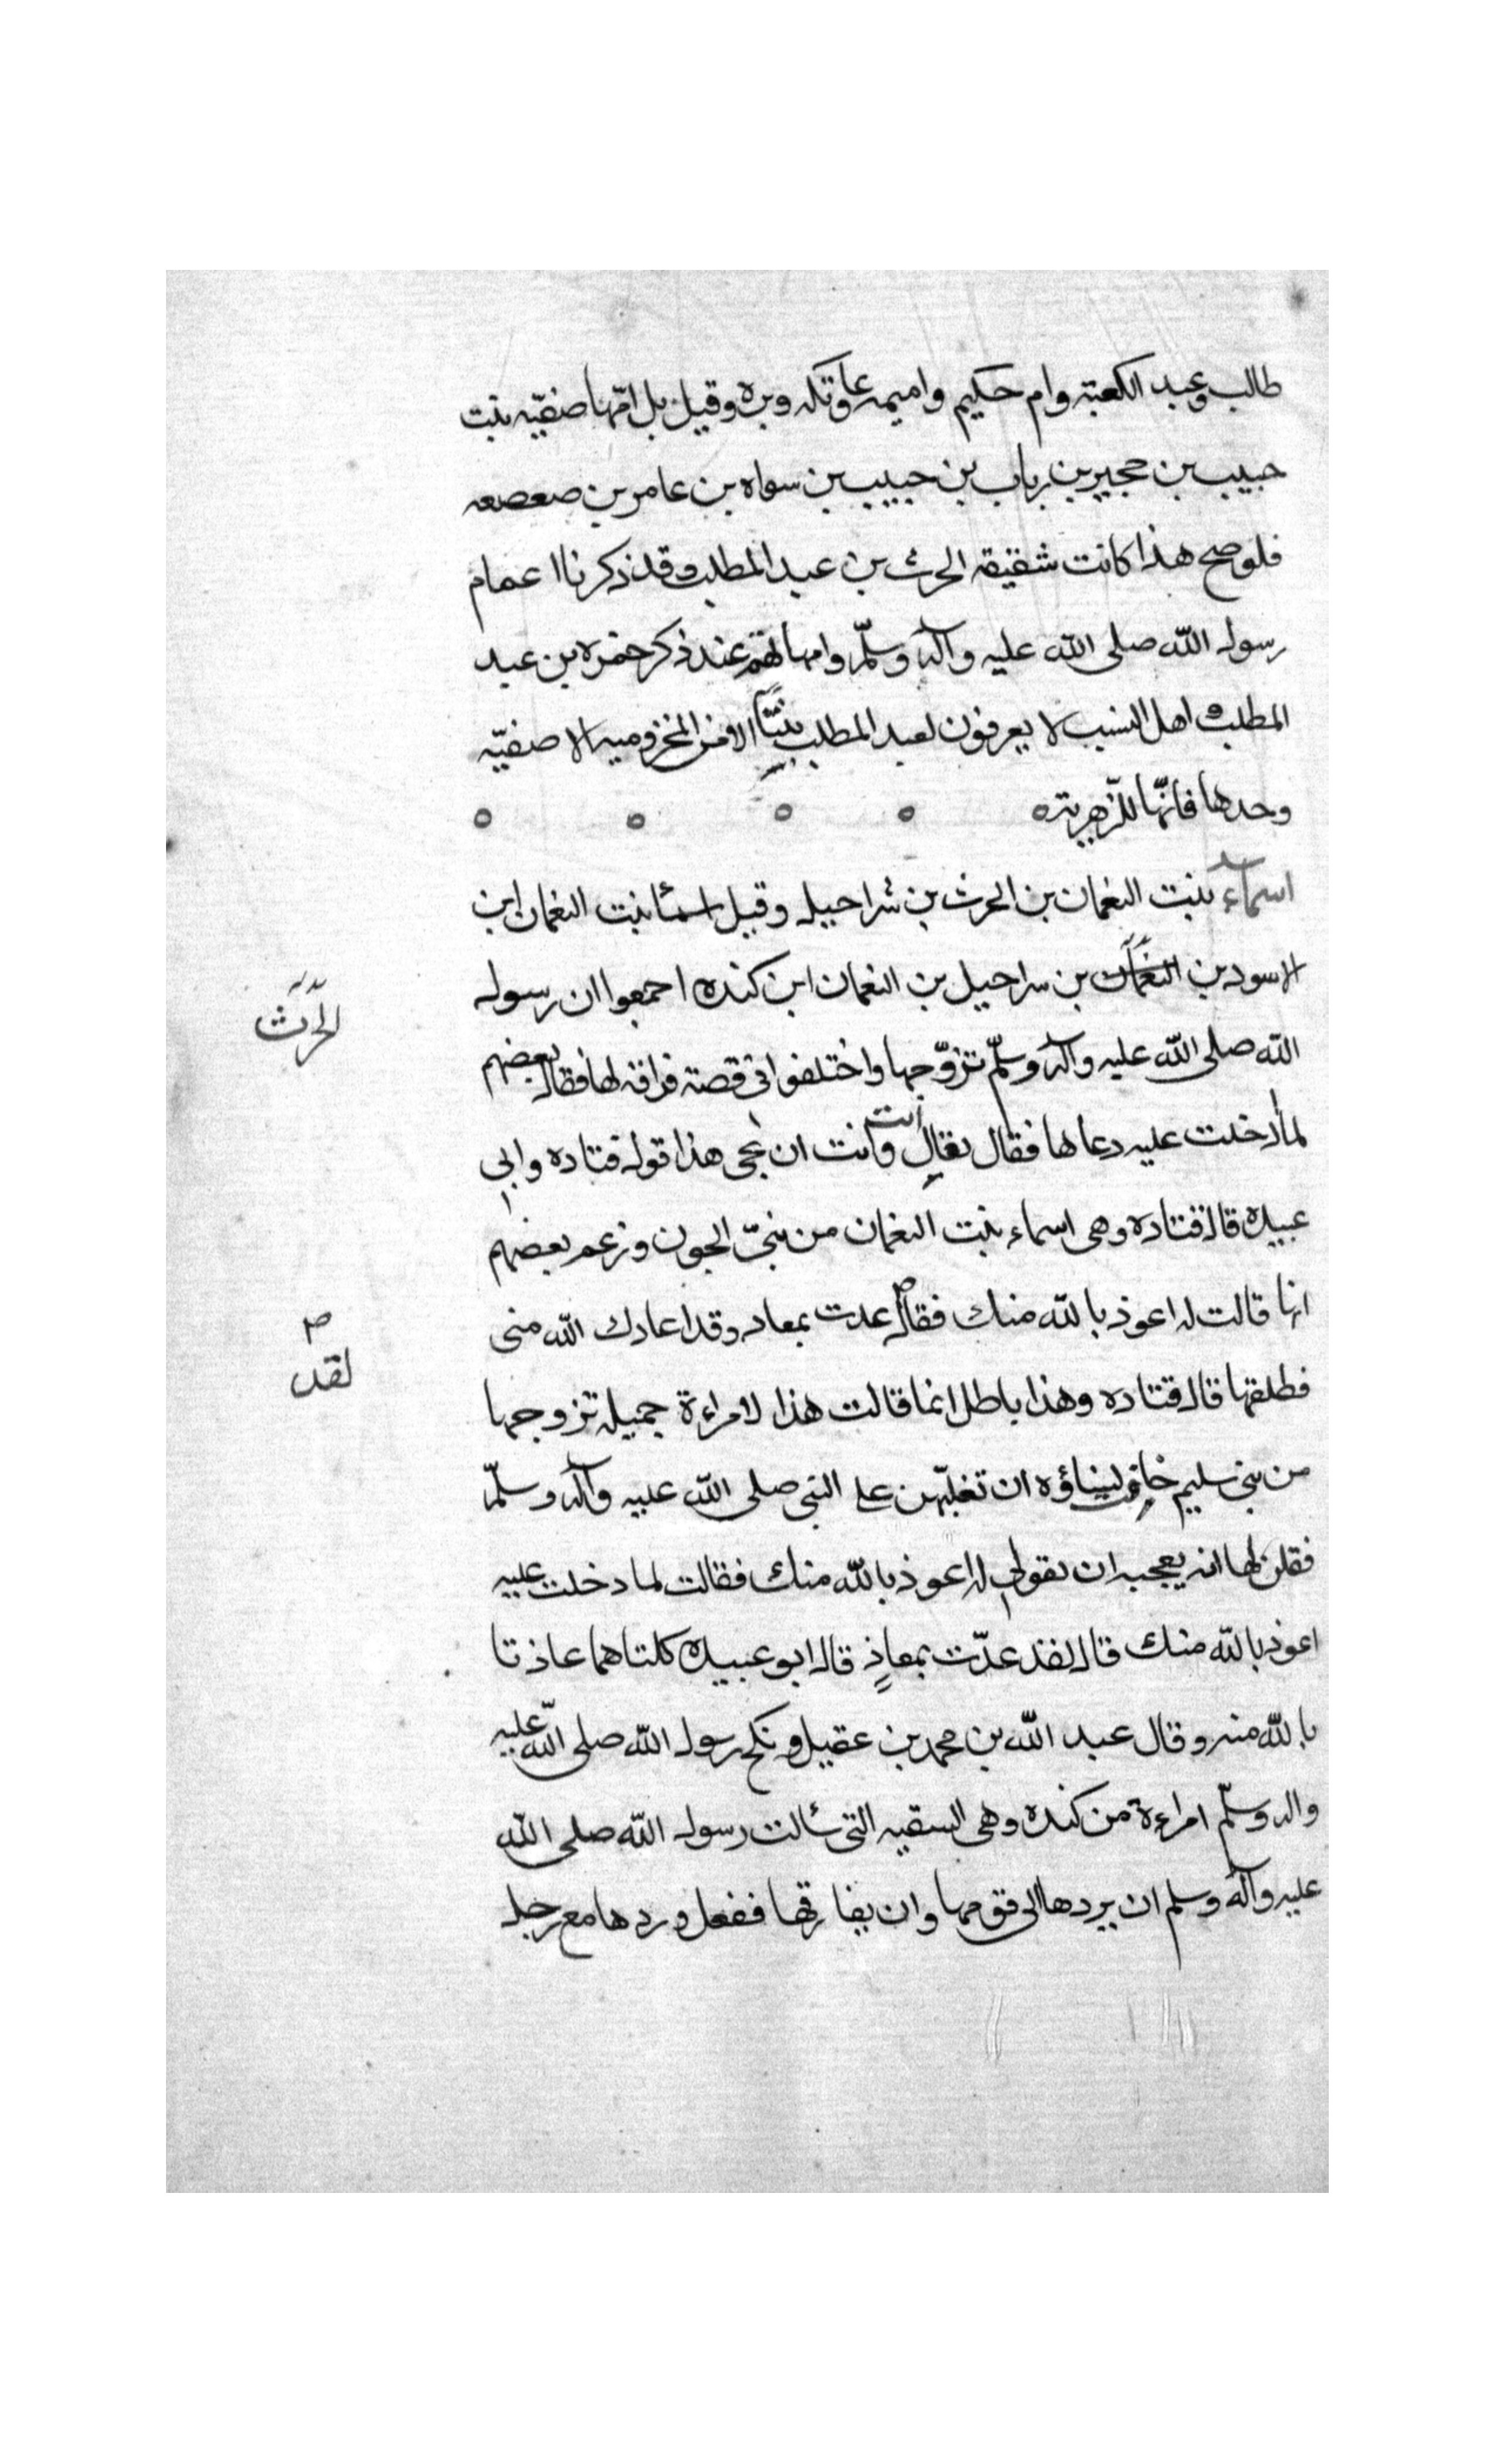 طالب وعبد الكعبة وام حكيم واميمه وعاتكه وبره وقيل بل امّها صفيّه بنت
حبيب بن حجير بن رباب بن حبيب بن سواه بن عامر بن صعصعه
فلو صح هذا كانت شقيقه الحرث بن عبد المطلب وقد ذكرنا اعمام
رسول الله صلى الله عليه وآله وسلّم وامهاتهم عند ذكر حمزه بن عبد
المطلب و اهل النسب لا يعرفون لعبد المطلب بنتًا الا من المخزوميه الا صفيّه
وحدها فانّها للزّهريته
اسمآء بنت النعمان بن الحرث بن شراحيل وقيل اسمأ بنت النعمان ابن
الاسود بن النعمان بن سراحيل بن النعمان ابن كنده احمعوا ان رسول
الحرث
الله صلى الله عليه وآله وسلّم تزوّجها واختلفوا فى قصة فراقه لها فقال بعضهم
لما دخلت عليه دعا لها فقال تعالِ أنت وكانت ان تجى هذا قول قتاده وابى
عبيده قال قتاده وهى اسماء بنت النعمان من بنىّ الجون وزعم بعضهم
انها قالت له اعوذ بالله منك فقال عدت بمعاد وقد اعادك الله منى
لقد
فطلقها قال قتاده وهذا باطل انما قالت هذا لامراءة جميله تزوجها
من بنى سليم خافن نساؤه ان تغلبّهن على النبى صلى الله عليه وآله وسلّم
فقلن لها انه يعجبه ان تقولى له اعوذ بالله منك فقالت لما دخلت عليه
اعوذ بالله منك قال لقد عدّت بمعاذٍ قال ابو عبيده كلتاهما عاذتا
بالله منه وقال عبد الله بن محمد بن عقيل و نكح رسول الله صلى الله عليه
واله وسلّم امراءة من كنده وهى السقيه التى سألت رسول الله صلى الله
عليه وآله وسلم ان يردها الى قومها وان يفارقها ففعل و ردها مع رجل